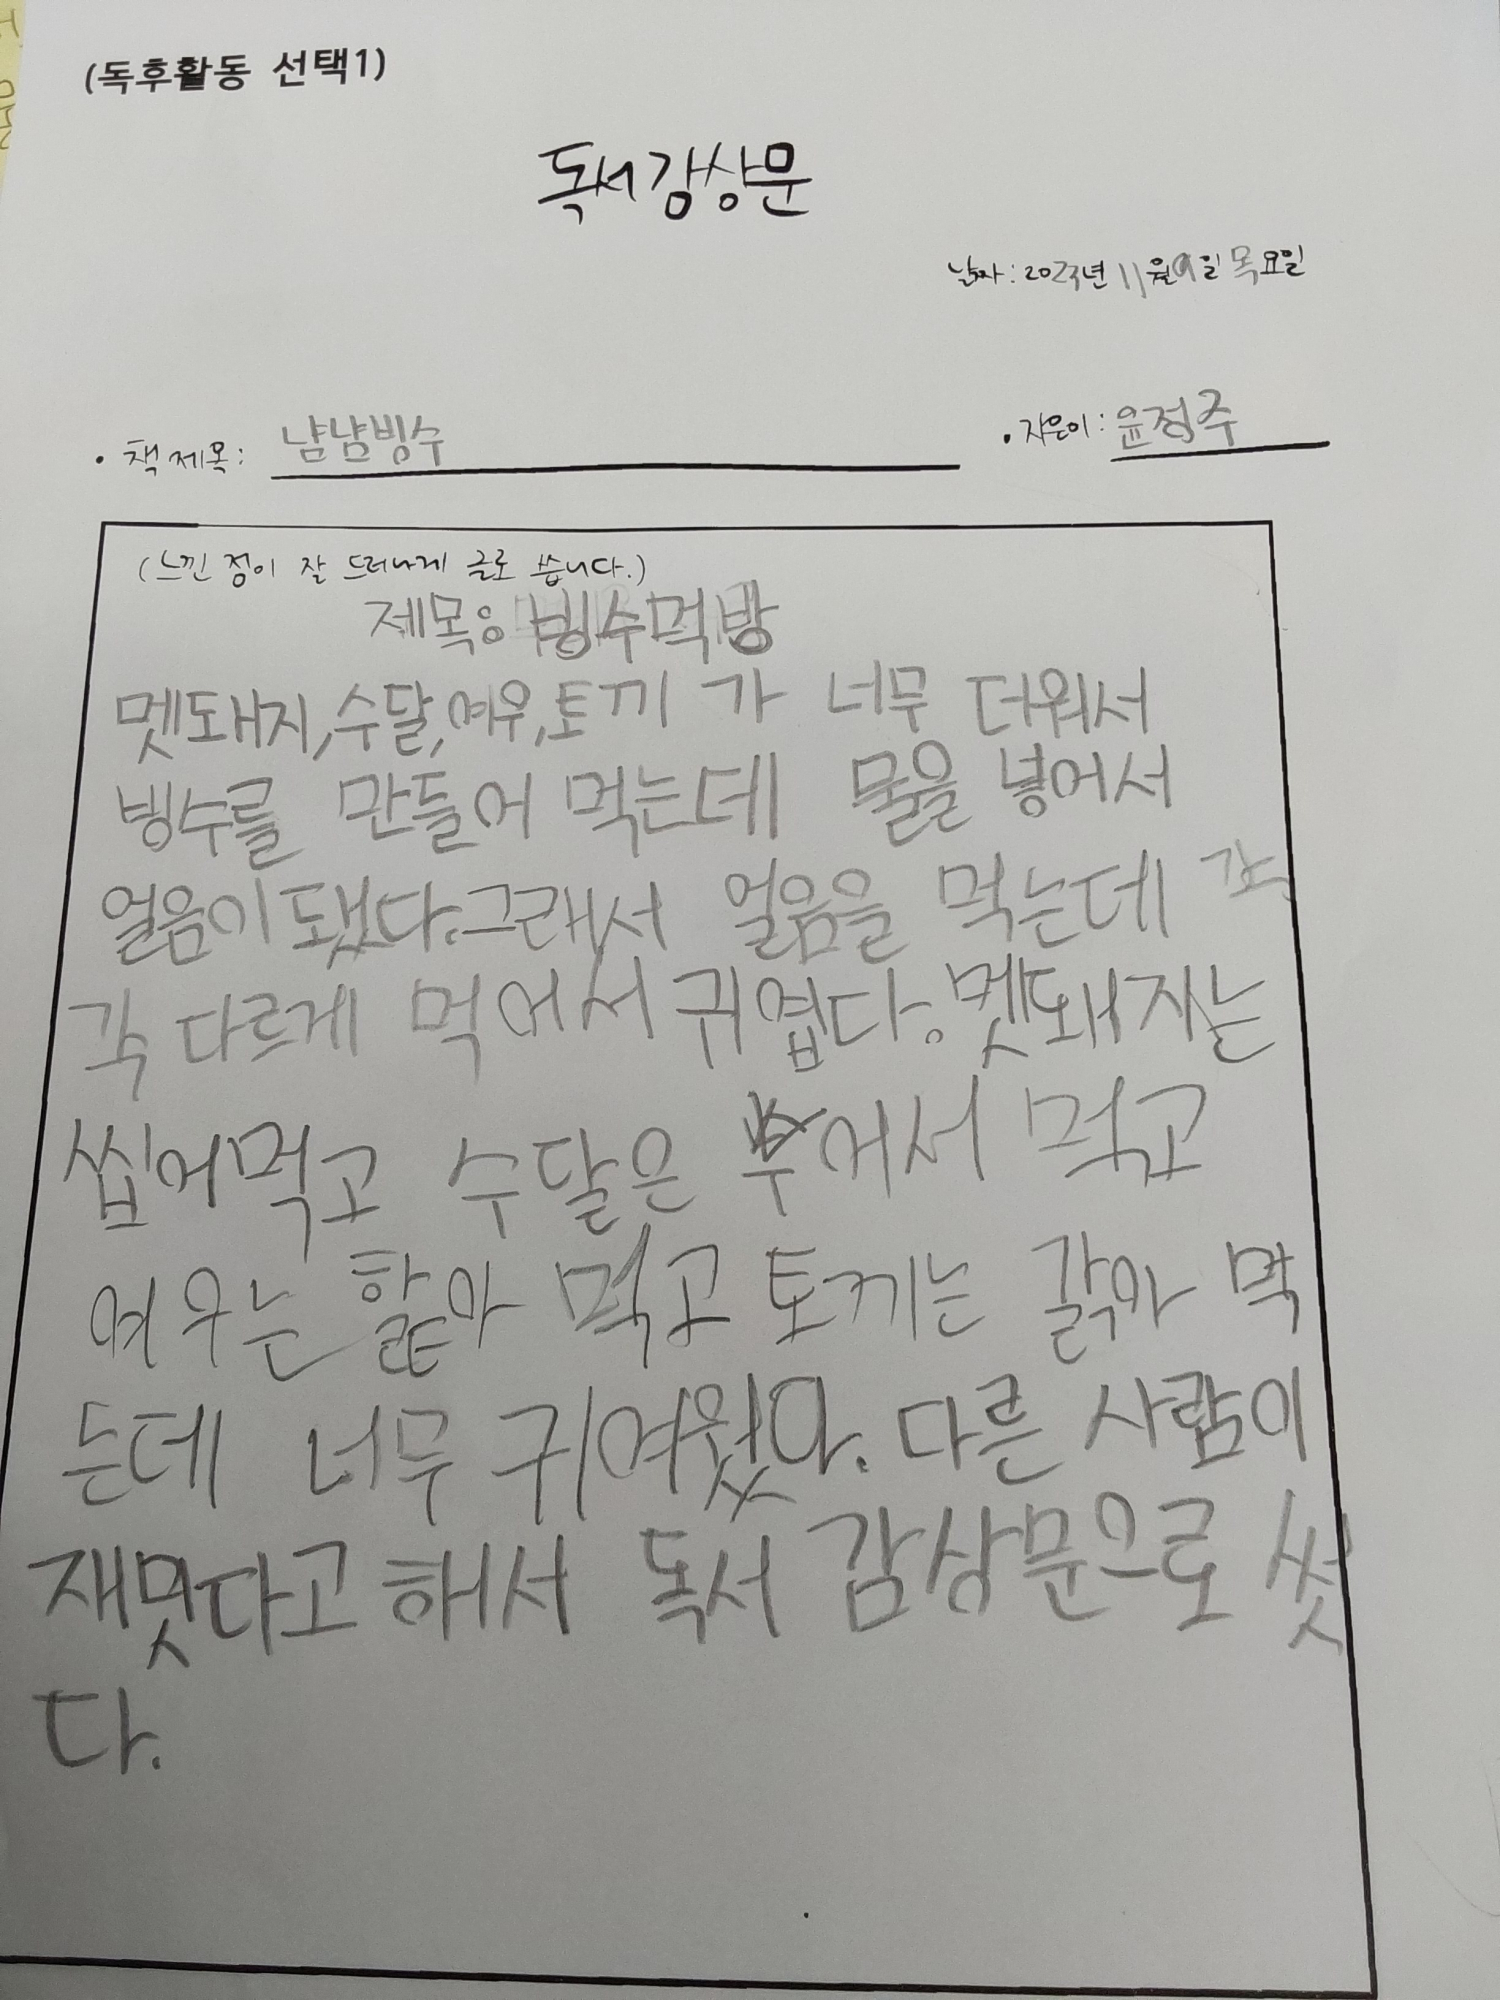 (독후활동 선택1)
독서감상문
날짜: 2023년 11월 9일 목요일
• 책 제목: 냠냠빙수
• 지은이: 윤정주
(느낀 점이 잘 드러나게 글로 씁니다.)
제목: 빙수먹방
멧돼지,수달,여우,토끼 가 너무 더워서
빙수를 만들어 먹는데 물을 넣어서
얼음이 됐다.그래서 얼음을 먹는데 각
각 다르게 먹어서 귀엽다. 멧돼지는
씹어먹고 수달은 뿌어서 먹고
여우는 핥아 먹고 토끼는 갉아 먹
는데 너무 귀여웠다. 다른 사람이
재밌다고 해서 독서 감상문으로 썼
다.